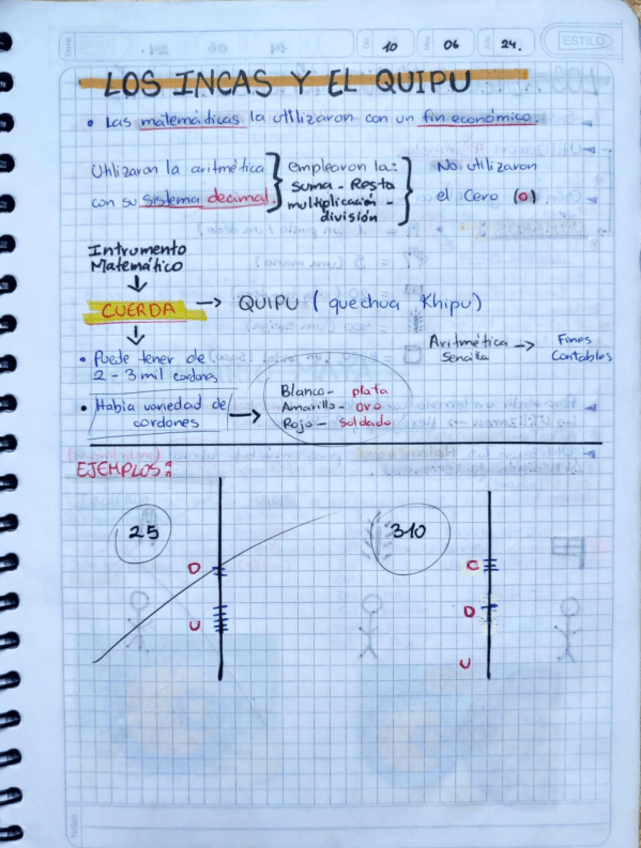 ESTILO
10 06 24.
LOS INCAS Y EL QUIPU
• Las matemáticas la utilizaron con un fin económico.
Utilizaron la aritmética
con su sistema decimal.
emplearon la:
suma - Resta
multiplicación -
división
No utilizaron
el Cero (0)
Intrumento
Matemático
CUERDA → QUIPU ( quechua Khipu)
• Puede tener de
2 - 3 mil cordones
Aritmética →
Sencilla
Fines
Contables
• Había variedad de
cordones
Blanco - plata
Amarillo - oro
Rojo - soldado
EJEMPLOS:
25
D
U
310
C
D
U